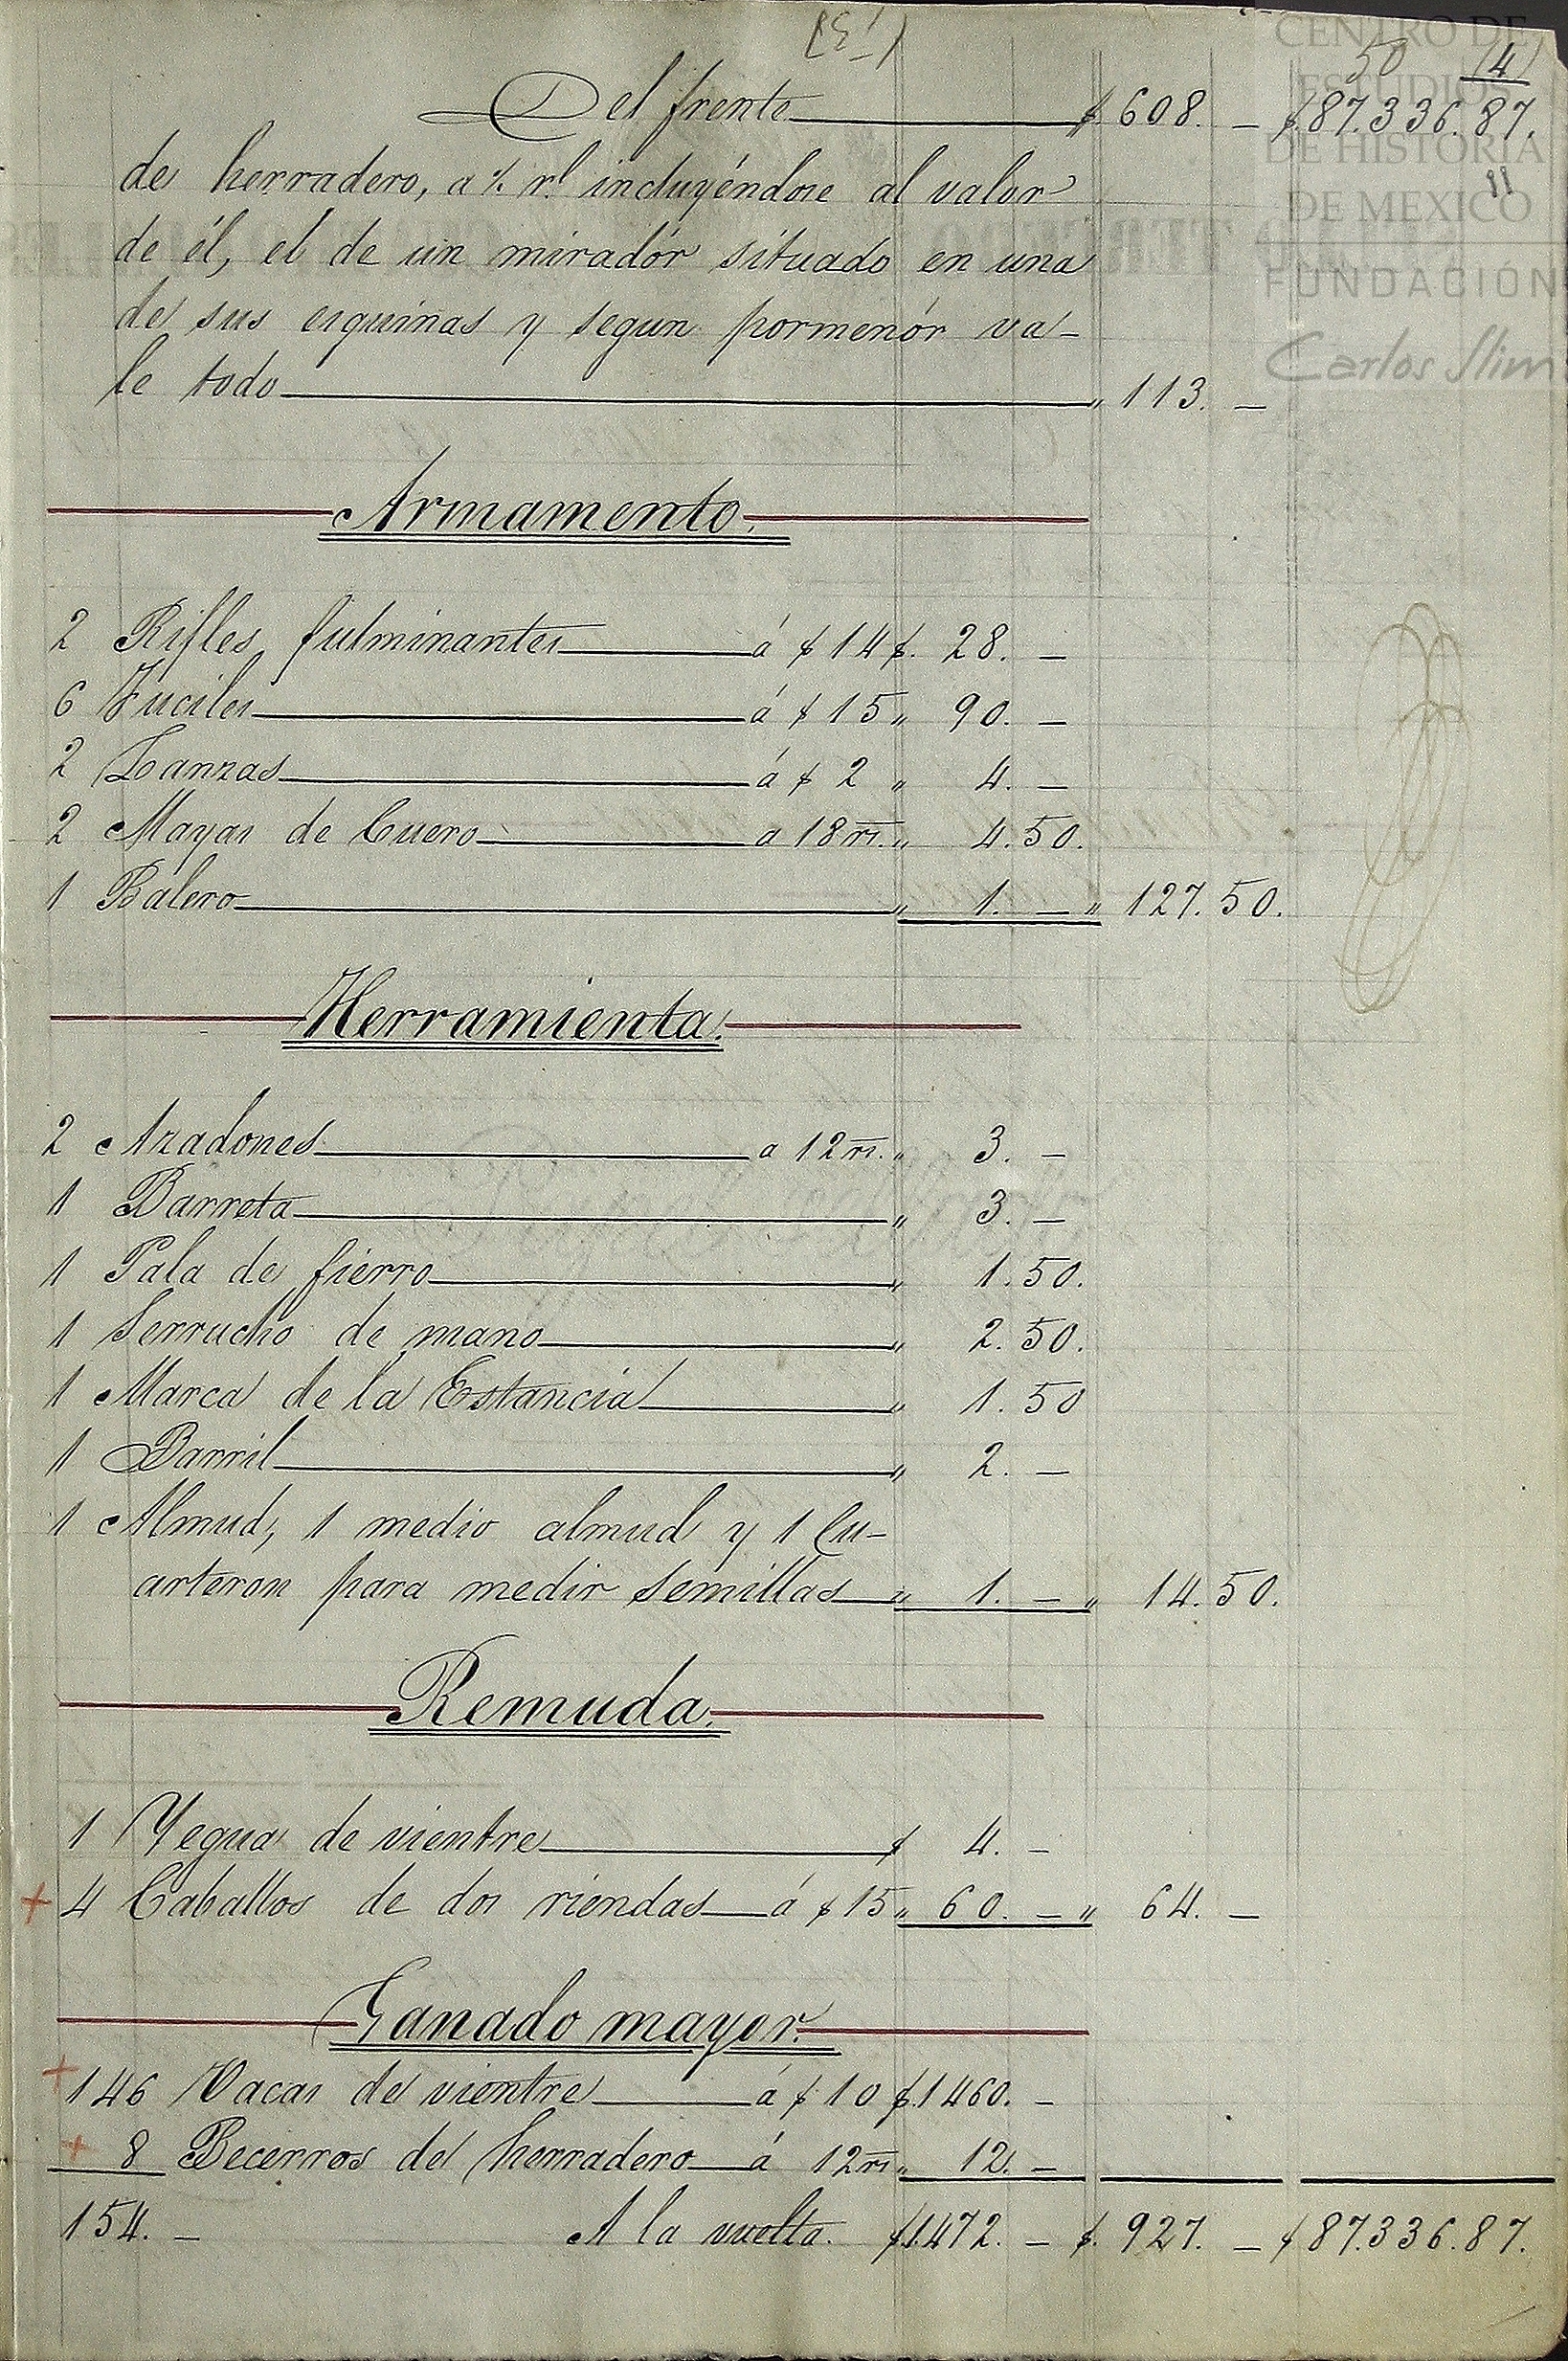 50 (4)
Del frente $ 608. — $87.336.87.
de herradero, a ½ rl incluyéndose al valor
de él, el de un miradór situado en una
de sus esquinas y segun pormenór va-
le todo " 113. —
Armamento.
2 Rifles fulminantes á $ 14 $. 28. —
6 Fuciles á $ 15 " 90. —
2 Lanzas á $ 2 " 4. —
2 Mayas de Cuero a 18 rs. " 4.50.
1 Balero " 1. — " 127.50.
Herramienta.
2 Azadones a 12 rs. " 3. —
1 Barreta " 3. —
1 Pala de fierro " 1.50.
1 Serrucho de mano " 2.50.
1 Marca de la Estancia " 1.50
1 Barril " 2. —
1 Almud, 1 medio almud y 1 Cu-
arteron para medir semillas " 1. — " 14.50.
Remuda.
1 Yegua de vientre $ 4. —
+ 4 Caballos de dos riendas á $ 15 " 60. — " 64. —
Ganado mayor.
+ 146 Vacas de vientre á $ 10 $.1460. —
+ 8 Becerros de herradero á 12 rs " 12. —
154. — A la vuelta. $1.472. — $. 927. — $87.336.87.
CENTRO DE
ESTUDIOS
DE HISTORIA
DE MEXICO
FUNDACIÓN
Carlos Slim